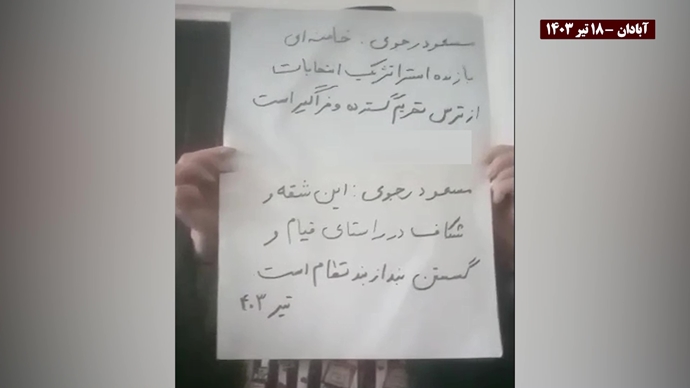 آبادان - ۱۸ تیر ۱۴۰۳
مسعود رجوی: خامنه‌ای
بازنده استراتژیک انتخابات
از ترس تحریم گسترده و فراگیر است
مسعود رجوی: این شقه و
شکاف در راستای قیام و
گسستن بند از بند نظام است
تیر ۴۰۳